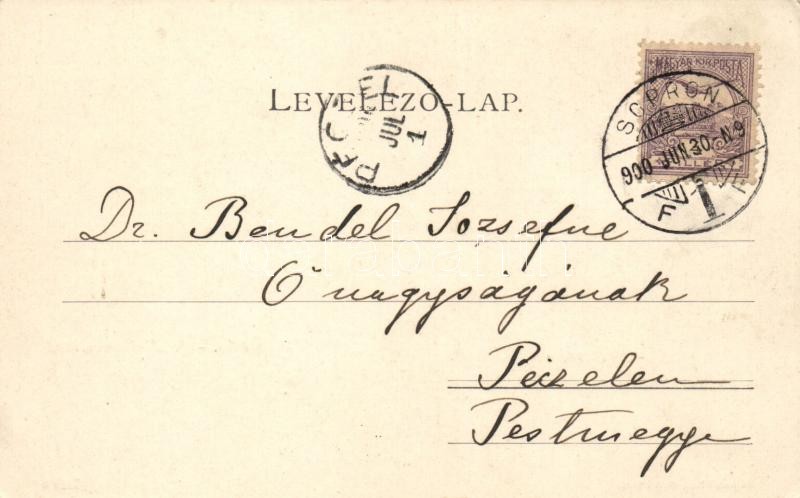 MAGYAR KIR. POSTA
SOPRON
900 JUN 30 N9
F 1
LEVELEZŐ-LAP.
PÉCZEL
JUL
1
Dr. Bendel Jozsefne
Ő nagyságának
Péczelen
Pestmegye